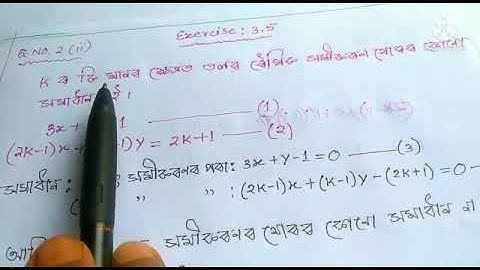 Exercise: 3.5
Q. No. 2 (ii)
K ৰ কি মানৰ ক্ষেত্ৰত তলৰ ৰৈখিক সমীকৰণ যোৰৰ কোনো
সমাধান
3x + 1 —— (1)
(2K-1)x 1)y = 2K+1 —— (2)
সমাধান : সমীকৰণৰ পৰা : 3x+y-1=0 —— (3)
" " : (2K-1)x+(K-1)y-(2K+1)=0 —
সমীকৰণৰ যোৰৰ কোনো সমাধান ন